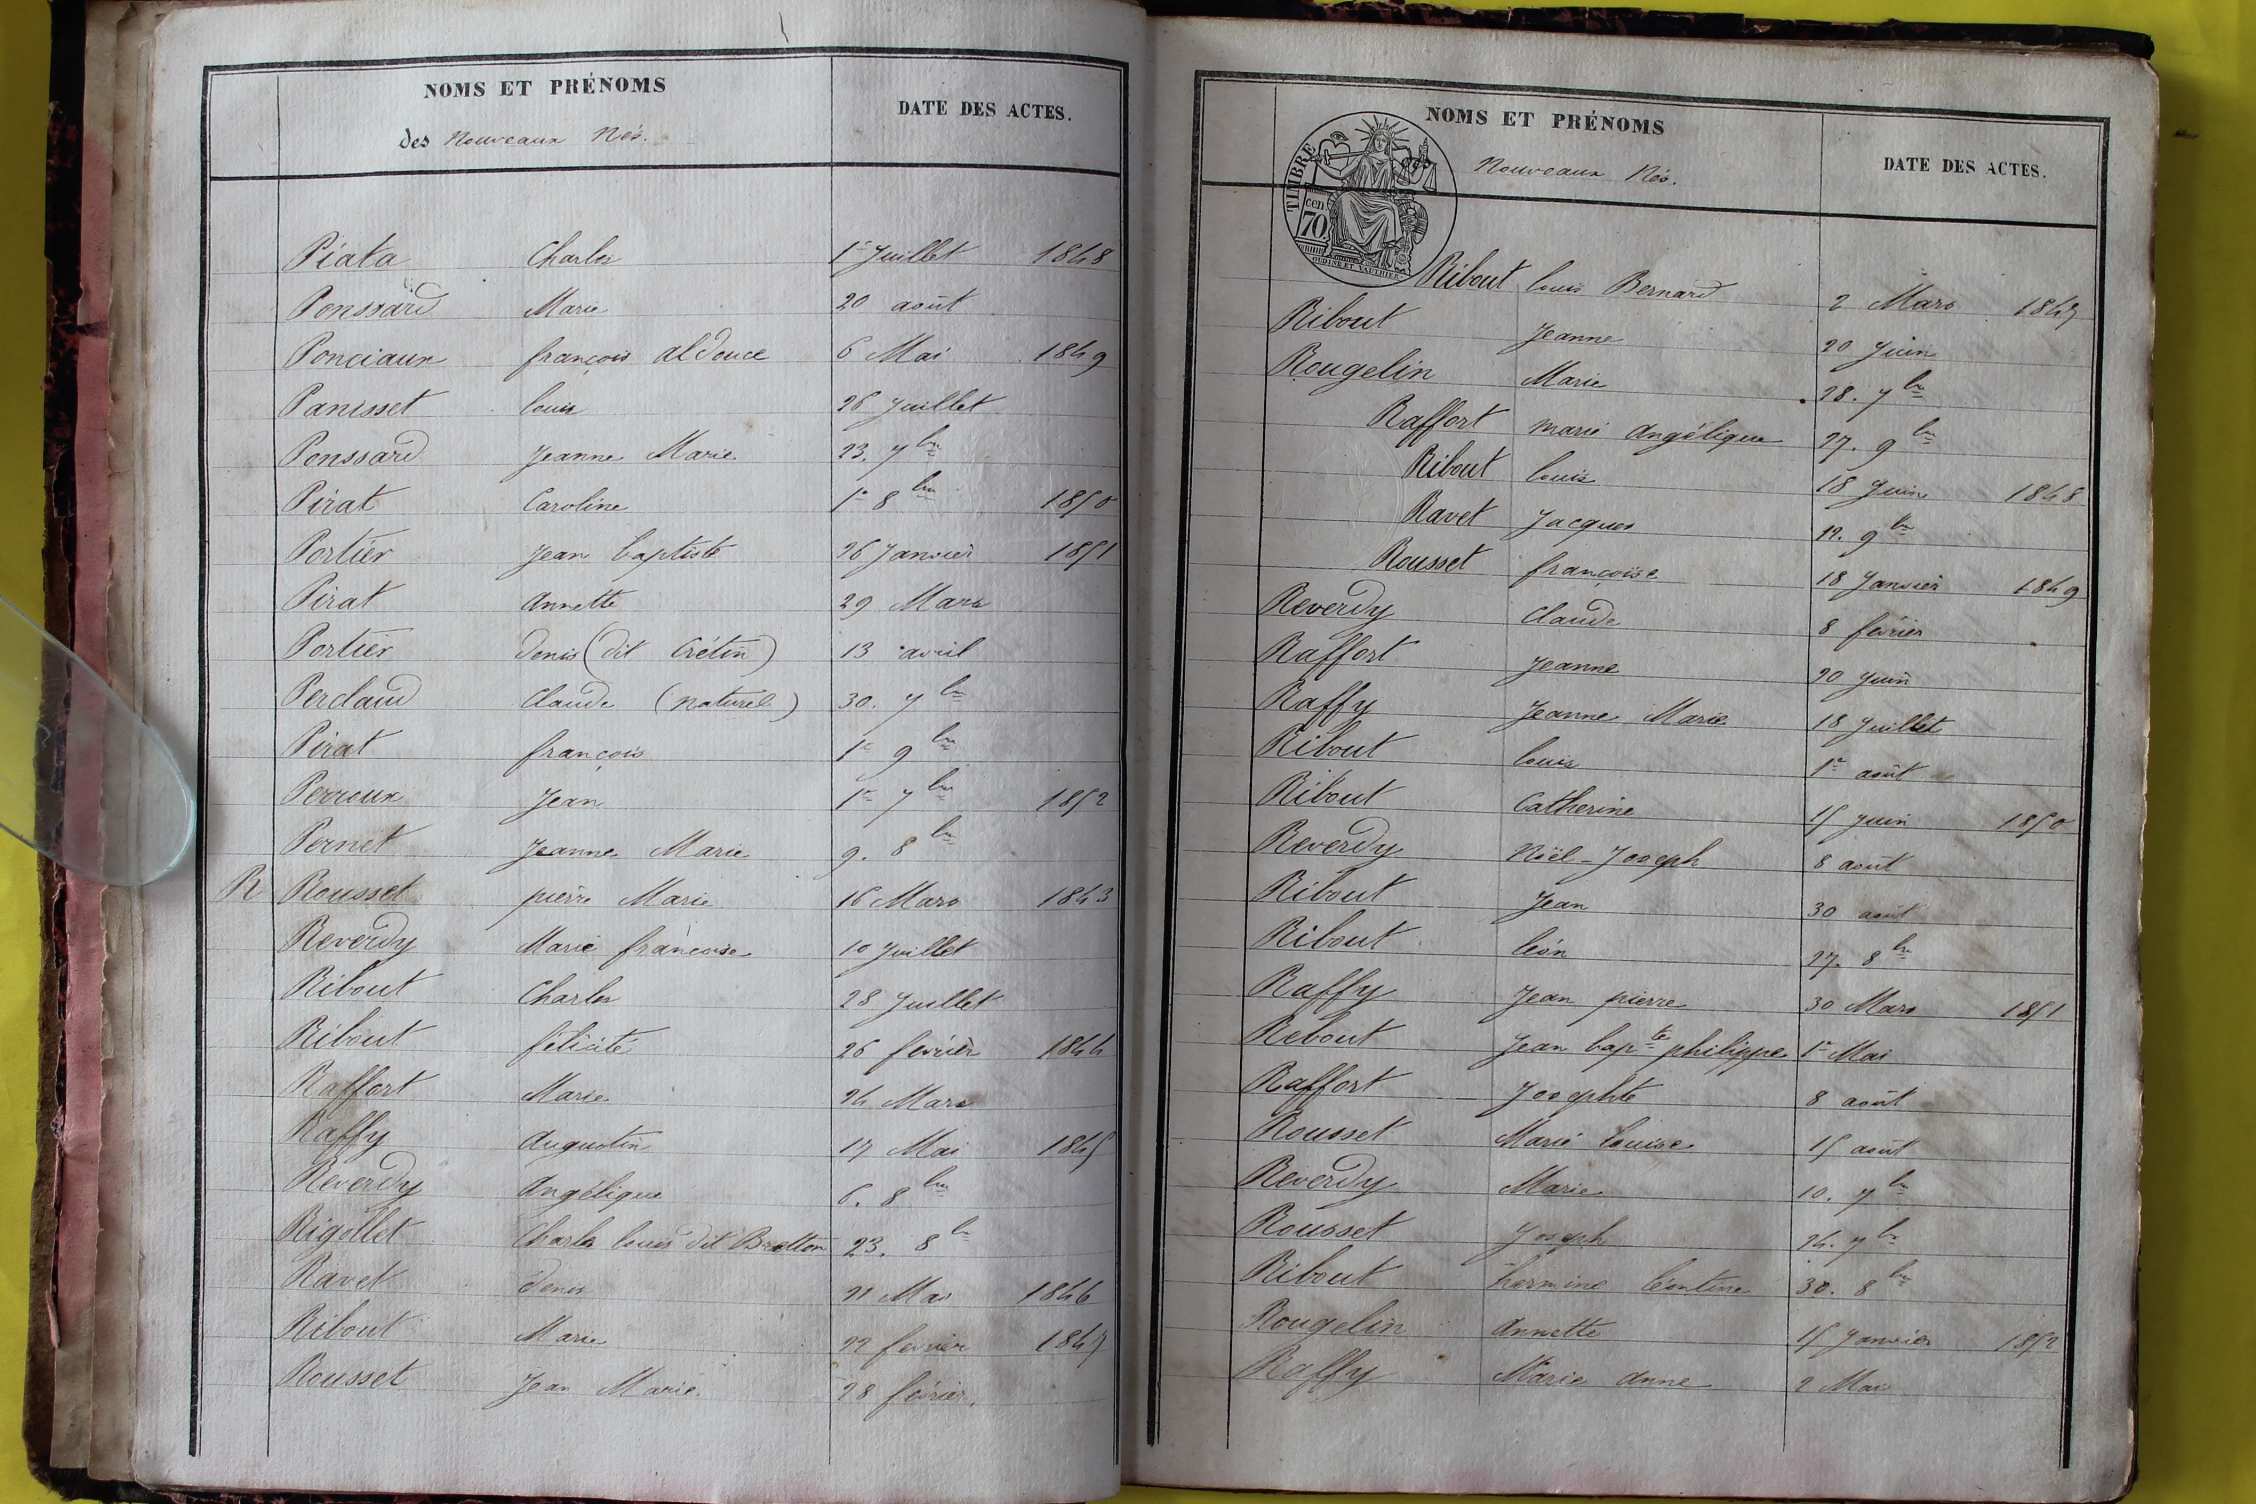 NOMS ET PRÉNOMS
DATE DES ACTES.
des Nouveaux Nés.
Piata Charles 1er Juillet 1848
Ponssard Marie 20 août
Ponciaux françois aldouce 6 Mai 1849
Panisset louis 26 Juillet
Ponssard Jeanne Marie 23. 7bre
Pirat Caroline 1er 8bre 1850
Portier Jean baptiste 26 Janvier 1851
Pirat Annette 29 Mars
Portier denis (dit Crétin) 13 avril
Perclaud Claude (naturel) 30. 7bre
Pirat françois 1er 9bre
Perroux Jean 1er 7bre 1852
Pernet Jeanne Marie 9. 8bre
R Rousset pierre Marie 16 Mars 1843
Reverdy Marie françoise 10 Juillet
Ribout Charles 28 Juillet
Ribout félicité 26 fevrier 1844
Raffort Marie 24 Mars
Raffy Augustin 17 Mai 1845
Reverdy Angélique 6. 8bre
Rigollet Charles louis dit Bretton 23. 8bre
Ravet denis 21 Mai 1846
Ribout Marie 22 fevrier 1847
Rousset Jean Marie 28 février.
NOMS ET PRÉNOMS
DATE DES ACTES.
Nouveaux Nés.
TIMBRE
70 cen.
OUDINÉ ET VAUTHIER
Ribout louis Bernard 2 Mars 1847
Ribout Jeanne 20 Juin
Rougelin Marie 28. 7bre
Raffort marie Angélique 27. 9bre
Ribout louis 18 Juin 1848
Ravet Jacques 19. 9bre
Rousset françoise 18 Janvier 1849
Reverdy Claude 8 février
Raffort Jeanne 20 Juin
Raffy Jeanne Marie 18 Juillet
Ribout louis 1er août
Ribout Catherine 15 juin 1850
Reverdy Noël-Joseph 8 août
Ribout Jean 30 août
Ribout léon 27. 8bre
Raffy Jean pierre 30 Mars 1851
Rebout Jean bapte philippe 1er Mai
Raffort Josephte 8 août
Rousset Marie louise 15 août
Reverdy Marie 10. 7bre
Rousset Joseph 24. 7bre
Ribout hermine léontine 30. 8bre
Rougelin Annette 15 Janvier 1852
Raffy Marie Anne 2 Mai